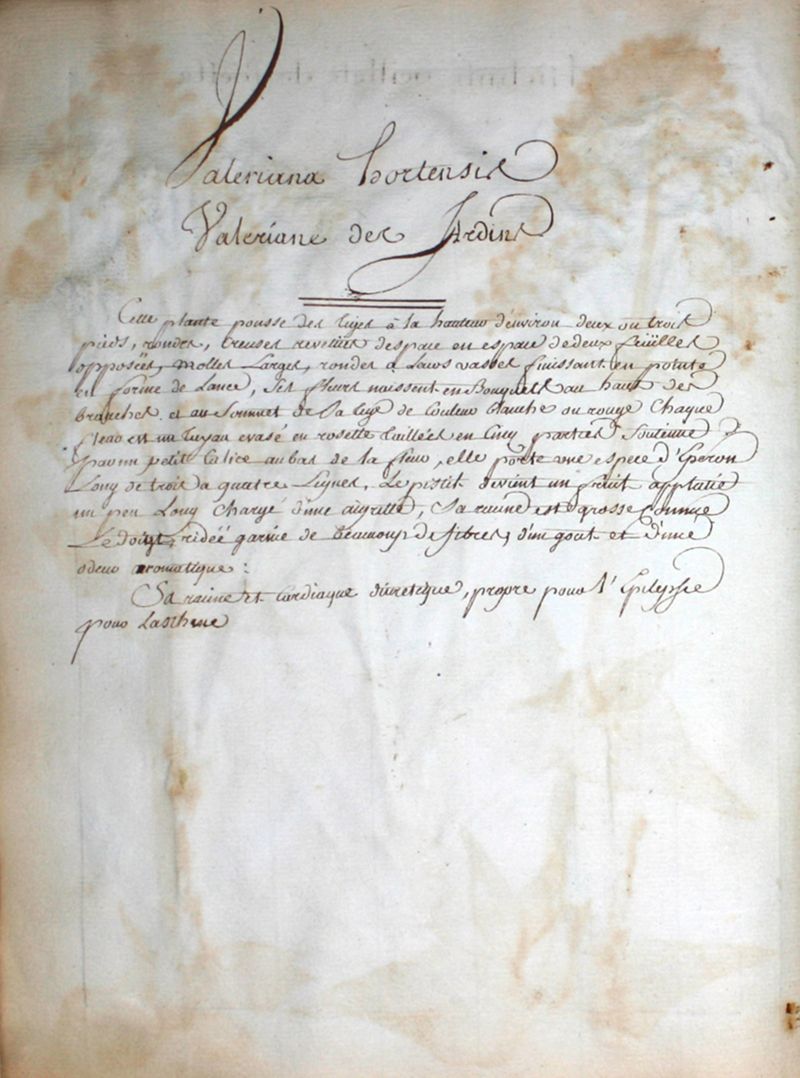 Valeriana hortensis
Valeriane des Jardins
Cette plante pousse des tiges à la hauteur d'environ deux ou trois
pieds, rondes, creuses revetües d'espace en espace de deux feüilles
opposées, molles Larges, rondes à Leurs vases finissant en pointe
en forme de Lance, Ses fleurs naissent en Bouquets au haut des
branches et au Sommet de Sa tige de Couleur blanche ou rouge Chaque
fleur est un tuyau evasé en rosette taillées en Cinq parties Soutenue
par un petit Calice au bas de la fleur, elle porte une espece d'Eperon
Long de trois a quatre Lignes, Le pistil devient un fruit applatie
un peu Long Chargé d'une aigrette, Sa racine est grosse comme
Le doigt, ridée garnie de beaucoup de fibres, d'un gout et d'une
odeur aromatique :
Sa racine est Cardiaque diuretique, propre pour l'Epilepsie
pour Lasthme